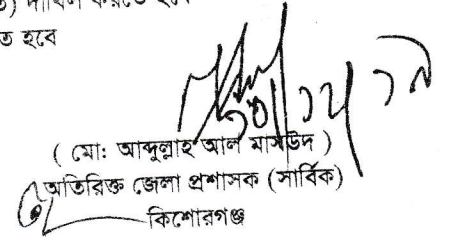 দাখিল করতে হবে
ত হবে
( মো: আব্দুল্লাহ আল মাসউদ )
অতিরিক্ত জেলা প্রশাসক (সার্বিক)
কিশোরগঞ্জ